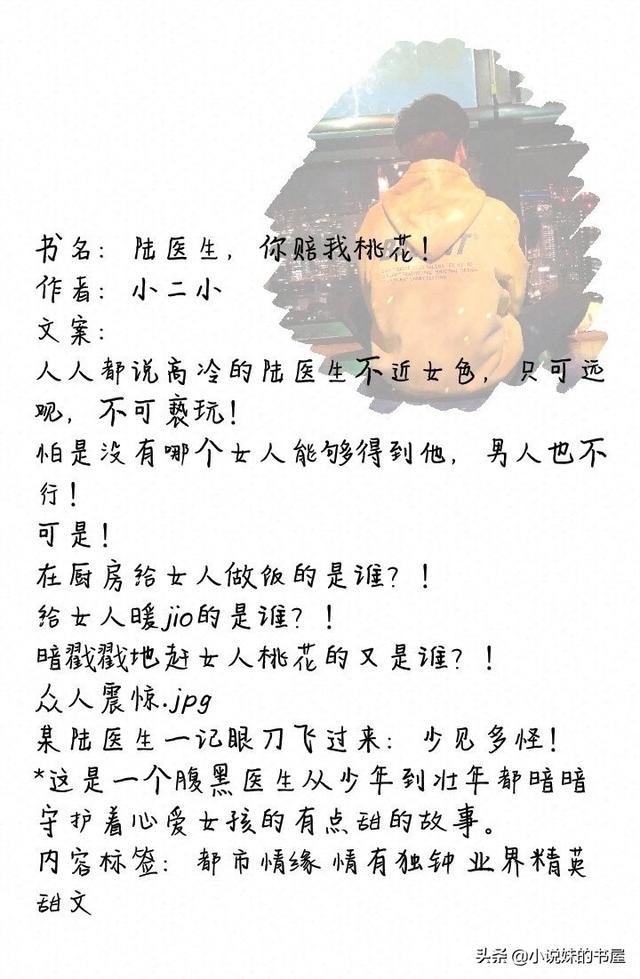 书名：陆医生，你赔我桃花！
作者：小二小
文案：
人人都说高冷的陆医生不近女色，只可远
观，不可亵玩！
怕是没有哪个女人能够得到他，男人也不
行！
可是！
在厨房给女人做饭的是谁？！
给女人暖jio的是谁？！
暗戳戳地赶女人桃花的又是谁？！
众人震惊.jpg
某陆医生一记眼刀飞过来：少见多怪！
*这是一个腹黑医生从少年到壮年都暗暗
守护着心爱女孩的有点甜的故事。
内容标签：都市情缘 情有独钟 业界精英
甜文
头条 @小说妹的书屋